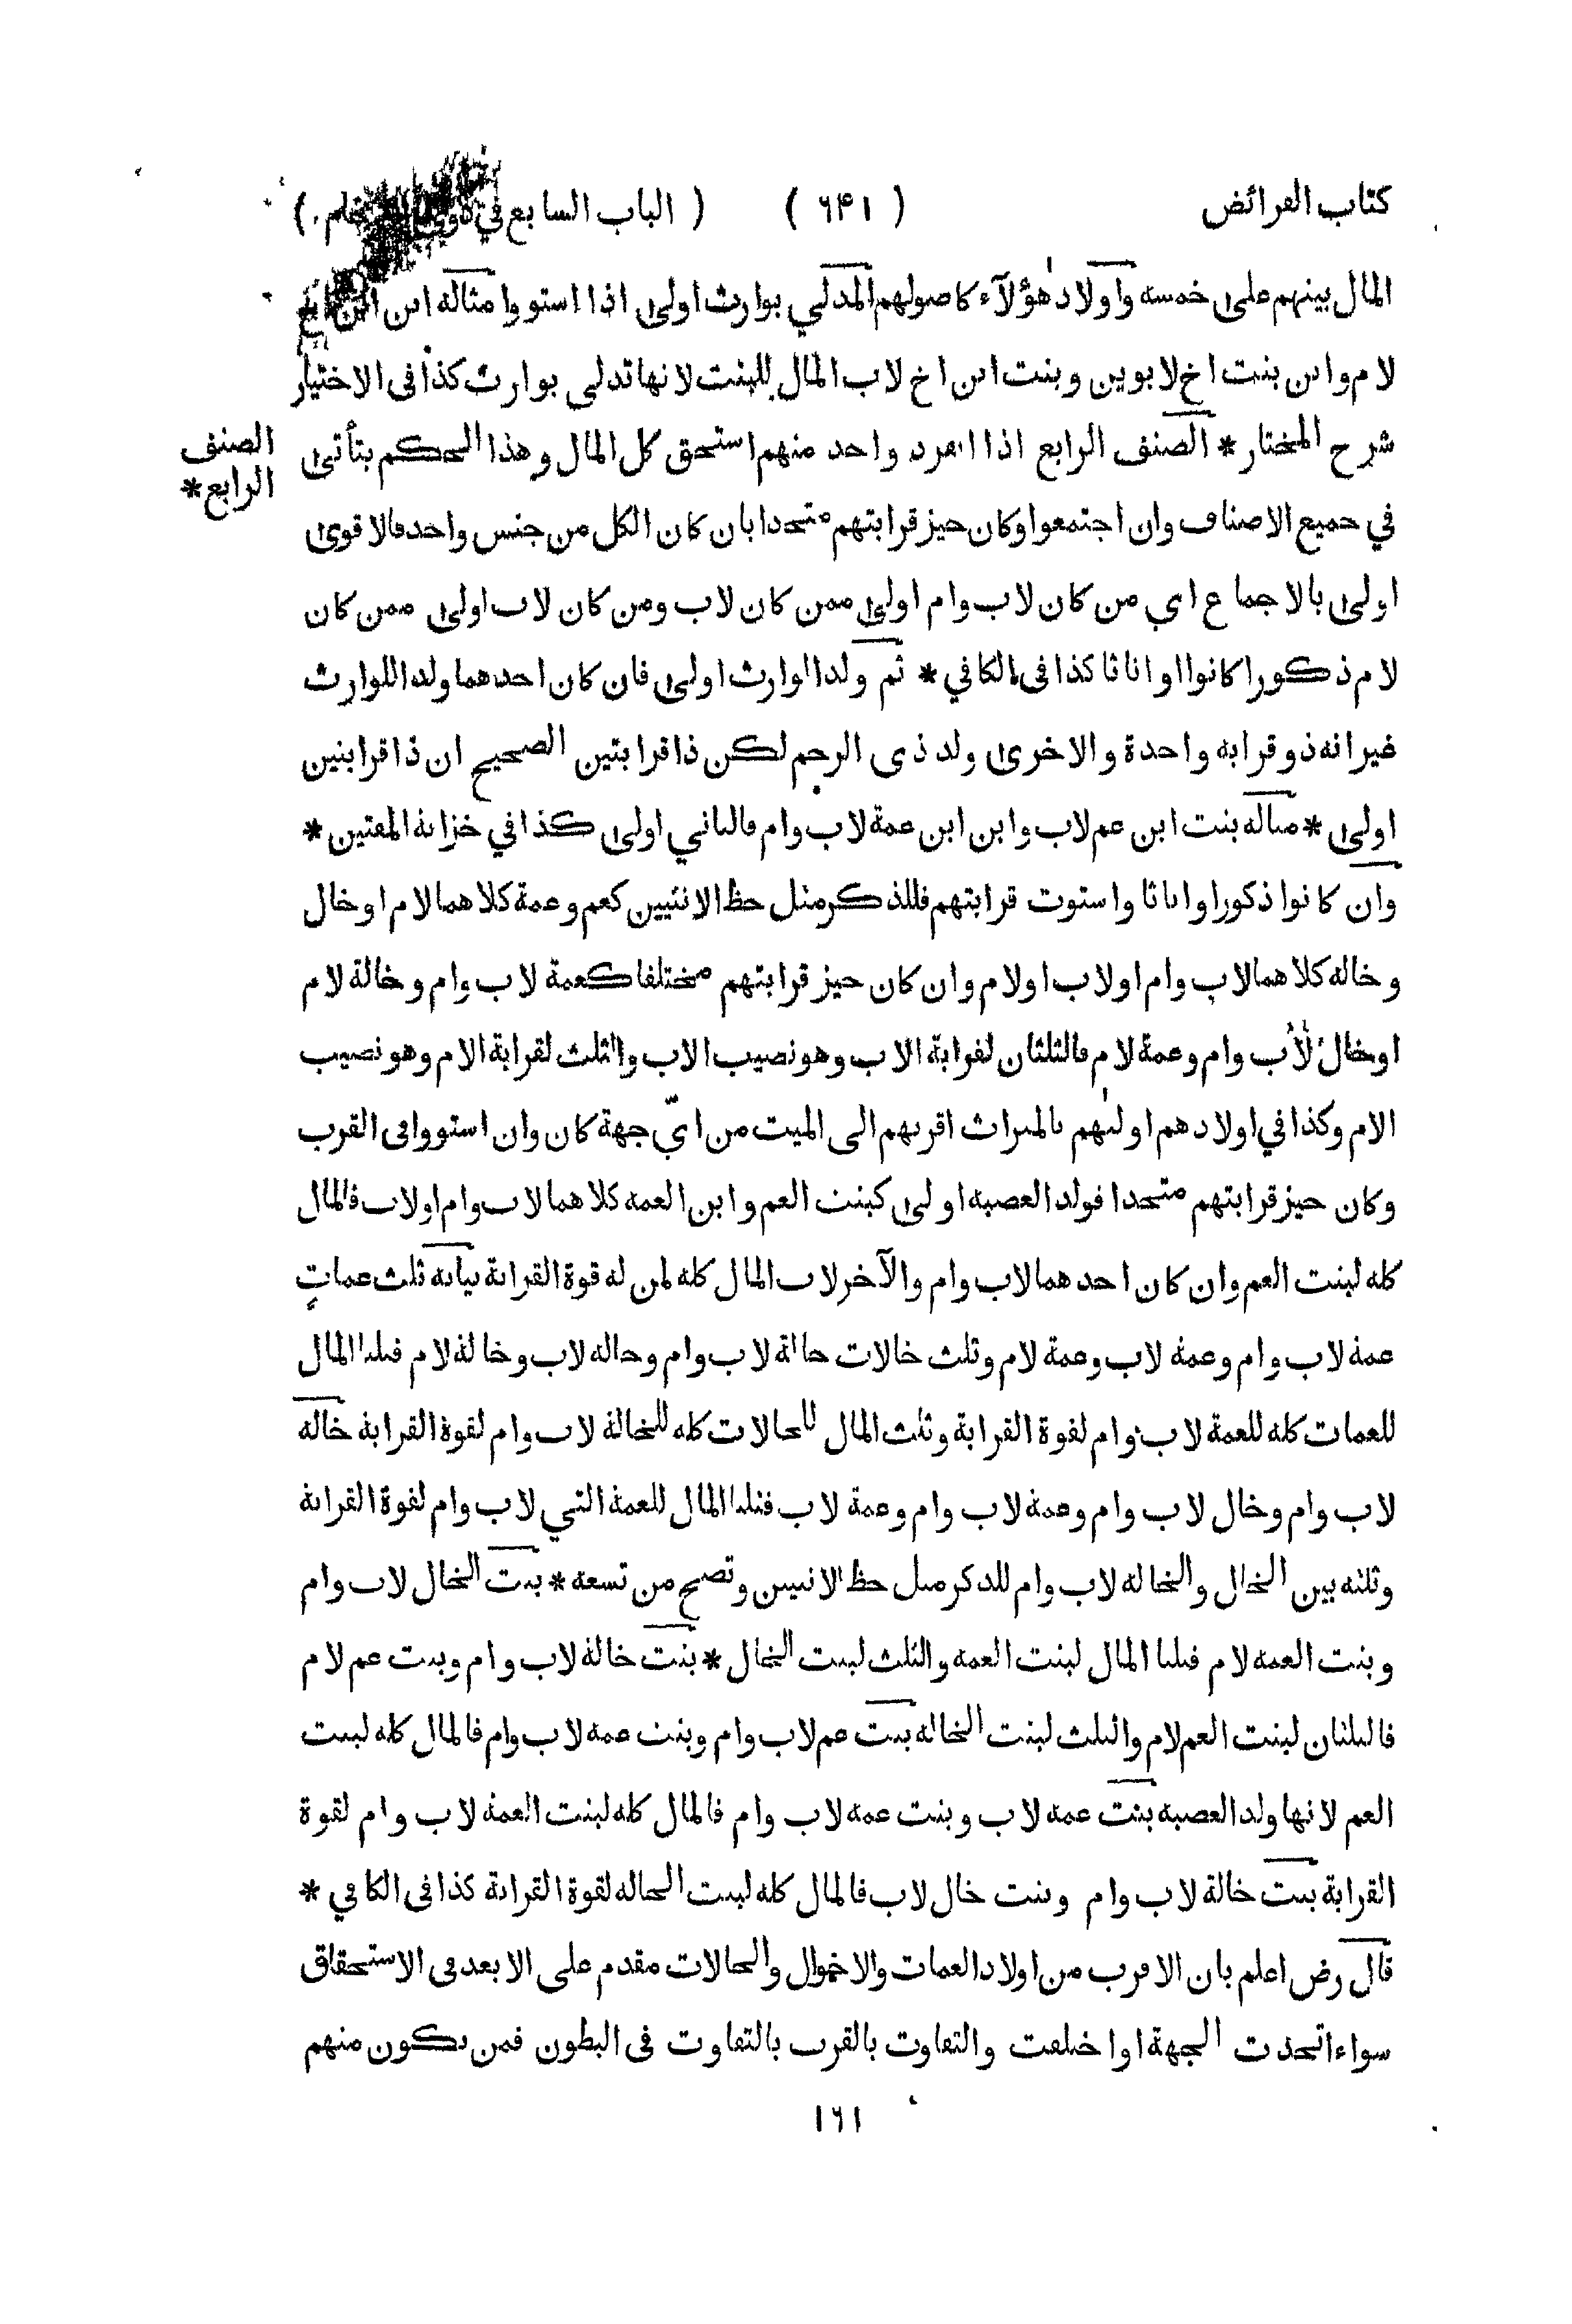 كتاب الفرائض ( ٦٤١ ) ( الباب السابع في ذوي الارحام )
المال بينهم على خمسه واولاد هؤلآء كاصولهم المدلي بوارث اولى اذا استووا مثاله ابن ابن اخ
لام وابن بنت اخ لابوين وبنت ابن اخ لاب المال للبنت لانها تدلى بوارث كذا فى الاختيار
شرح المختار * الصنف الرابع اذا انفرد واحد منهم استحق كل المال وهذا الحكم يتأتى
الصنف
الرابع *
في جميع الاصناف وان اجتمعوا وكان حيز قرابتهم متحدا بان كان الكل من جنس واحد فالاقوى
اولى بالاجماع اي من كان لاب وام اولى ممن كان لاب ومن كان لاب اولى ممن كان
لام ذكورا كانوا او اناثا كذا فى الكافي * ثم ولد الوارث اولى فان كان احدهما ولد اللوارث
غير انه ذو قرابه واحدة والاخرى ولد ذى الرحم لكن ذا قرابتين الصحيح ان ذا قرابتين
اولى * مثاله بنت ابن عم لاب وابن ابن عمة لاب وام فالثاني اولى كذا في خزانة المفتين *
وان كانوا ذكورا واناثا واستوت قرابتهم فللذكر مثل حظ الانثيين كعم وعمة كلاهما لام او خال
وخاله كلاهما لاب وام او لاب او لام وان كان حيز قرابتهم مختلفا كعمة لاب وام وخالة لام
او خال لاب وام وعمة لام فالثلثان لقرابة الاب وهو نصيب الاب والثلث لقرابة الام وهو نصيب
الام وكذا في اولادهم اولٰهم بالميراث اقربهم الى الميت من ايّ جهة كان وان استووا فى القرب
وكان حيز قرابتهم متحدا فولد العصبه اولى كبنت العم وابن العمه كلاهما لاب وام او لاب فالمال
كله لبنت العم وان كان احدهما لاب وام والآخر لاب المال كله لمن له قوة القرابة بيانه ثلث عمات
عمة لاب وام وعمة لاب وعمة لام وثلث خالات خالة لاب وام وخاله لاب وخالة لام فثلثا المال
للعمات كله للعمة لاب وام لقوة القرابة وثلث المال للخالات كله للخالة لاب وام لقوة القرابة خاله
لاب وام وخال لاب وام وعمة لاب وام وعمة لاب فثلثا المال للعمة التي لاب وام لقوة القرابة
وثلثه بين الخال والخاله لاب وام للذكر مثل حظ الانثيين وتصح من تسعه * بنت الخال لاب وام
وبنت العمه لام فثلثا المال لبنت العمه والثلث لبنت الخال * بنت خالة لاب وام وبنت عم لام
فالثلثان لبنت العم لام والثلث لبنت الخاله بنت عم لاب وام وبنت عمه لاب وام فالمال كله لبنت
العم لانها ولد العصبه بنت عمه لاب وبنت عمه لاب وام فالمال كله لبنت العمة لاب وام لقوة
القرابة بنت خالة لاب وام وبنت خال لاب فالمال كله لبنت الخاله لقوة القرابة كذا فى الكافي *
قال رض اعلم بان الاقرب من اولاد العمات والاخوال والخالات مقدم على الابعد فى الاستحقاق
سواء اتحدت الجهة او اختلفت والتفاوت بالقرب بالتفاوت فى البطون فمن يكون منهم
١٦١